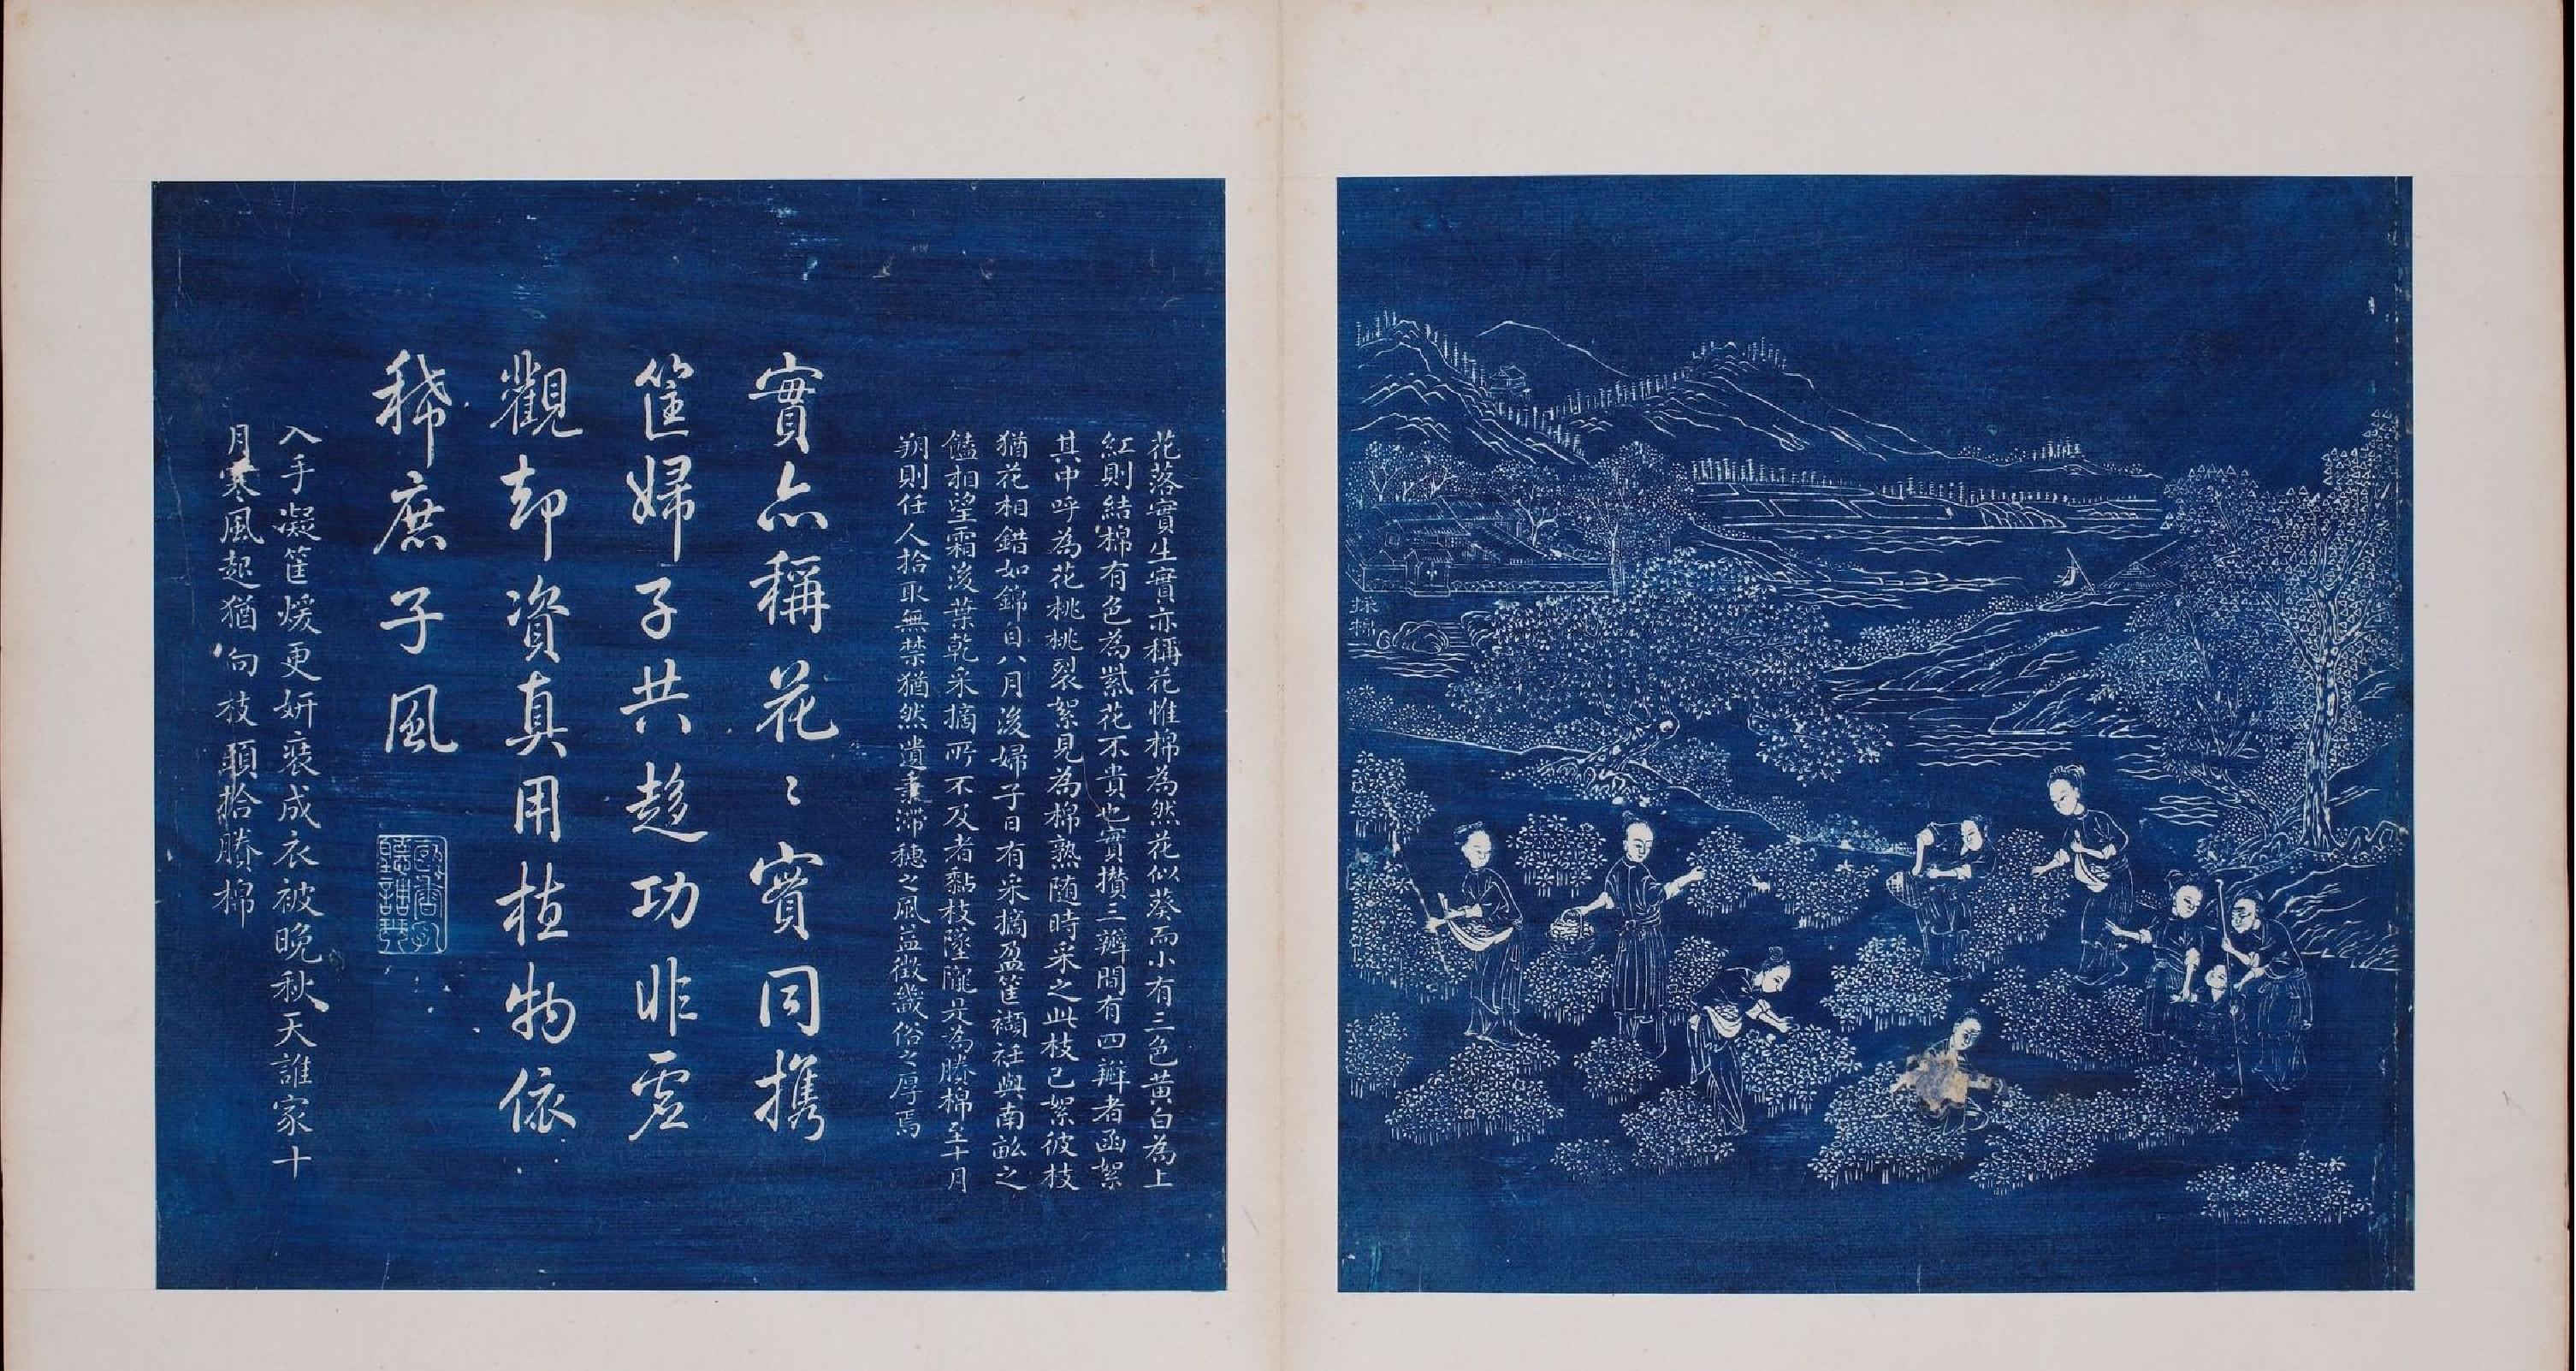 採棉
花落實生實亦稱花惟棉為然花似葵而小有三色黃白為上
紅則結棉有色為紫花不貴也實攢三瓣間有四瓣者函絮
其中呼為花桃桃裂絮見為棉熟随時采之此枝已絮彼枝
猶花相錯如錦自八月後婦子日有采摘盈筐襭衽與南畝之
饁相望霜後葉乾采摘所不及者黏枝墜隴是為賸棉至十月
朔則任人拾取無禁猶然遺秉滯穗之風益徵畿俗之厚焉
實亦稱花〻實同携
筐婦子共趍功非虛
觀却資真用植物依
稀庶子風
入手凝筐煖更妍裝成衣被晚秋天誰家十
月寒風起猶向枝頭拾賸棉